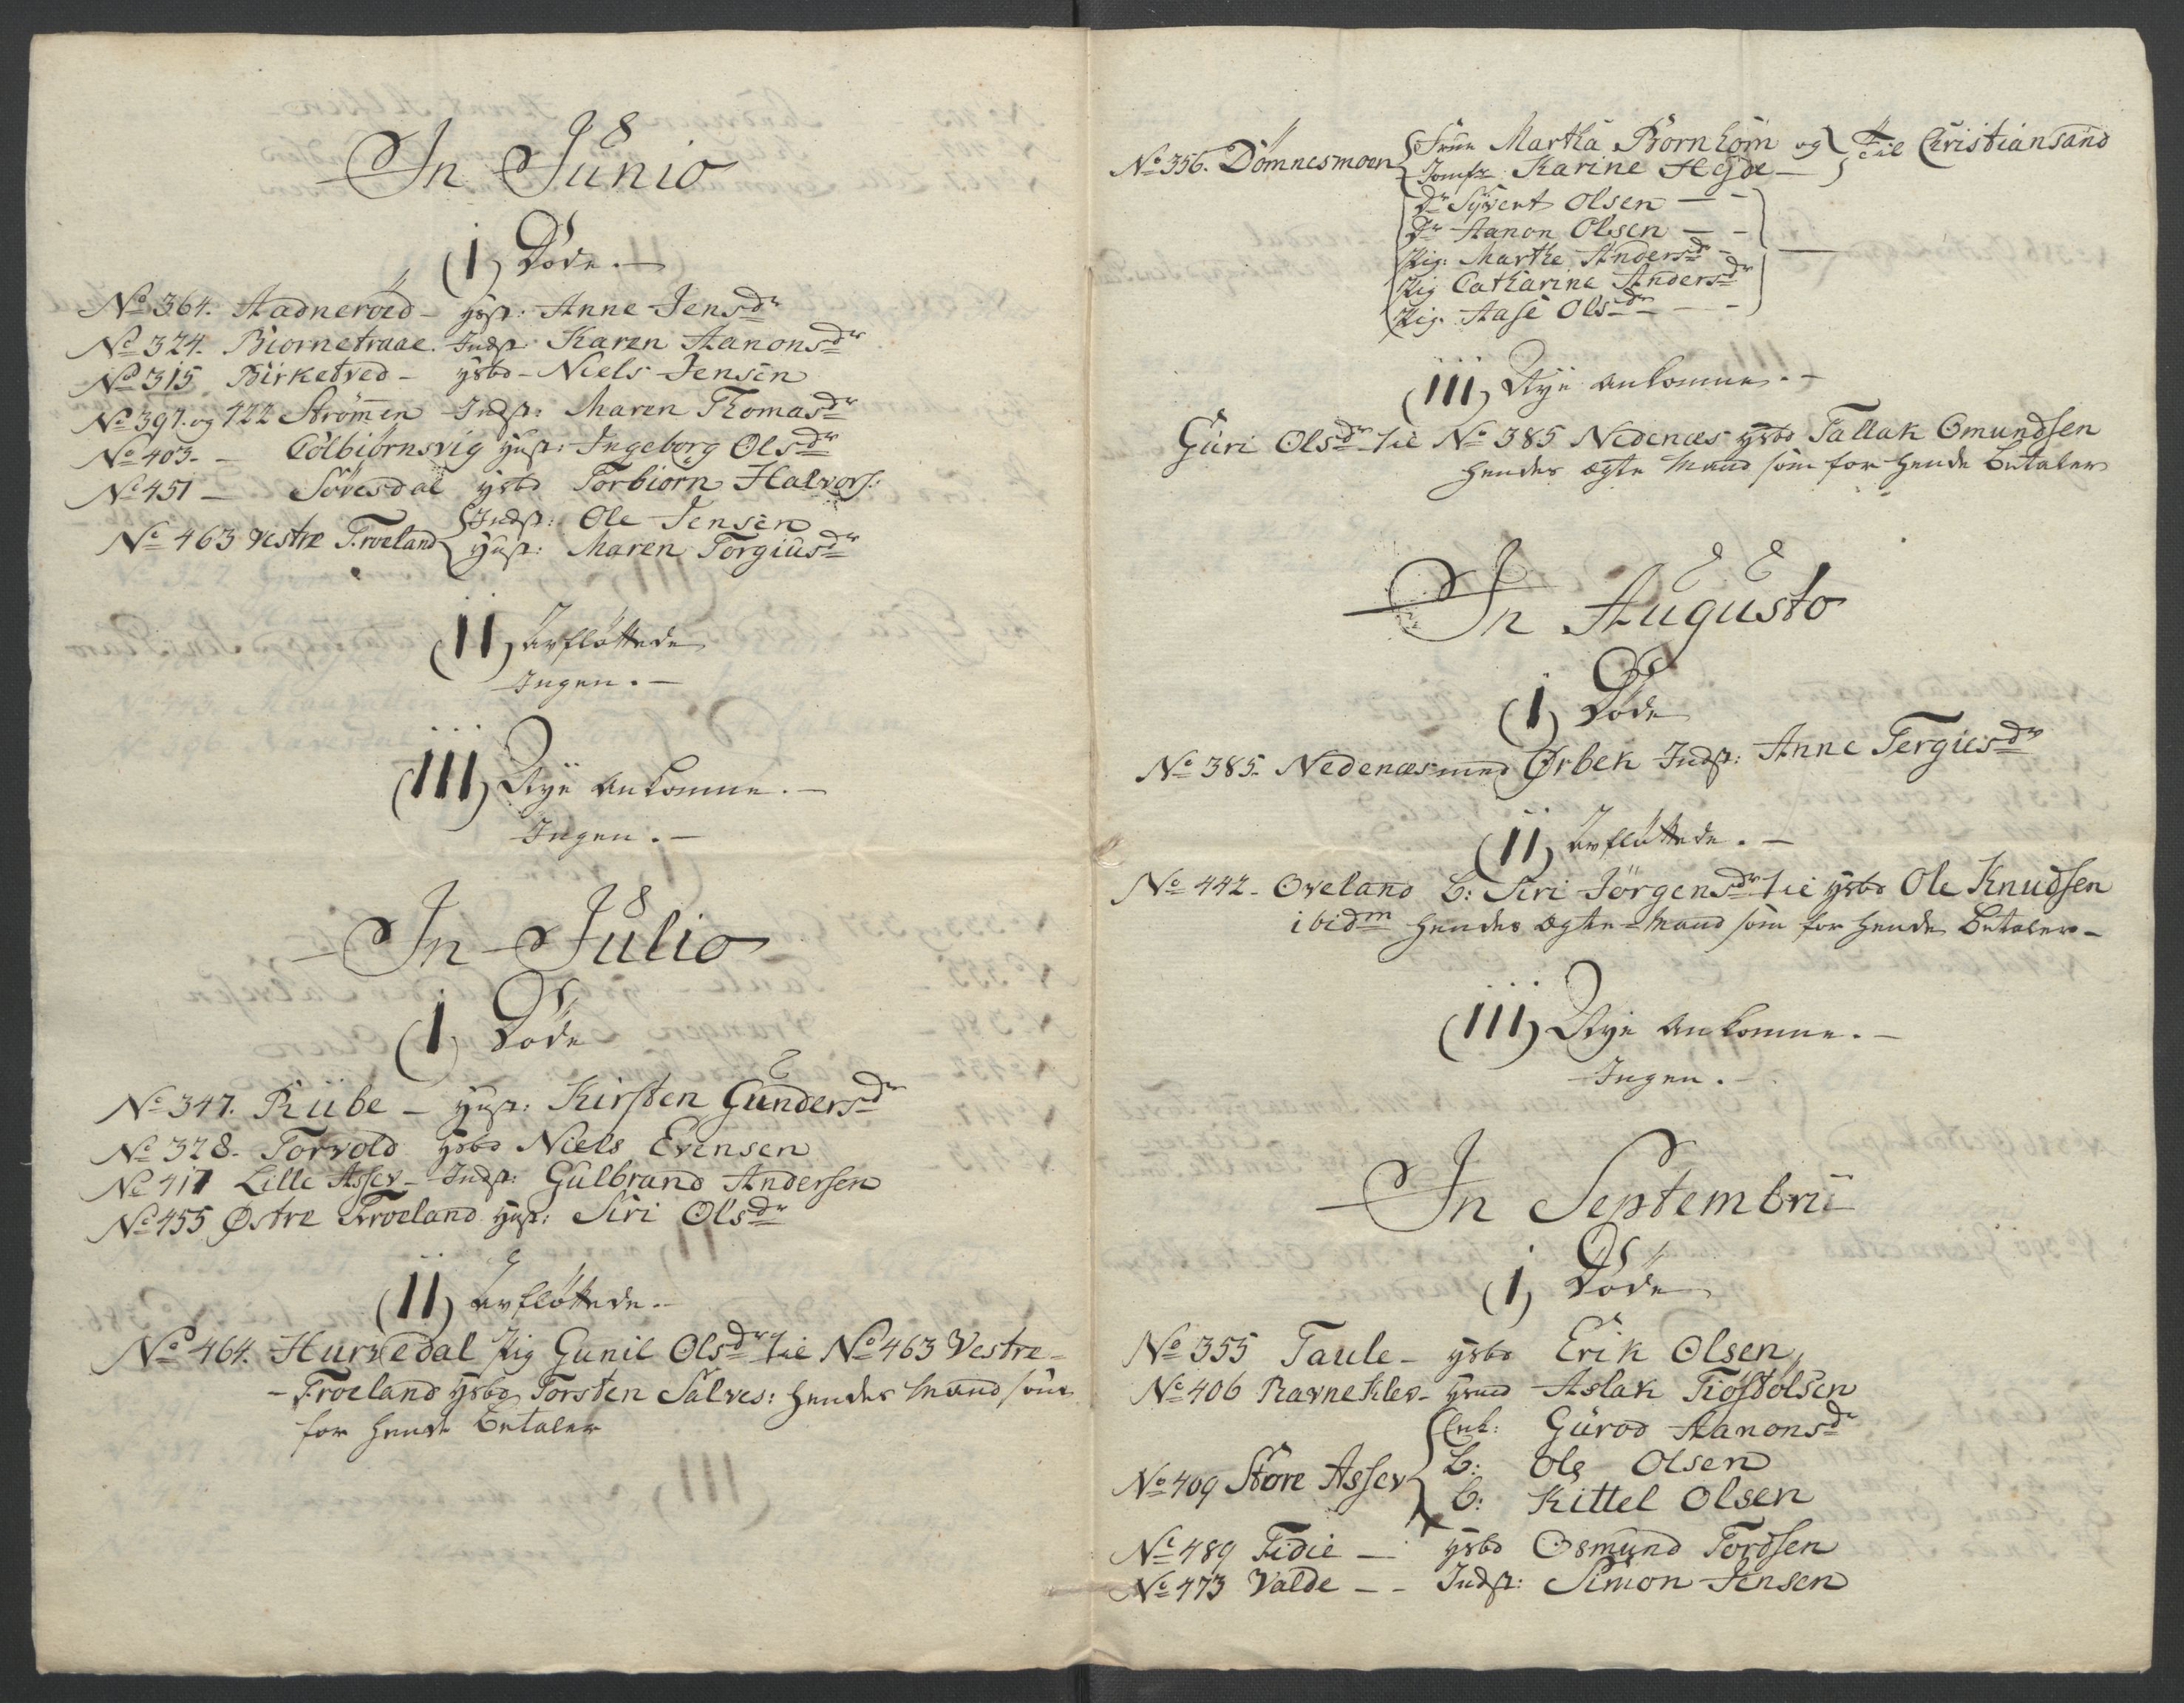 In Junio
(I) Døde. —
No 364. Aadneröed — Hust: Anne Jensdr
No 324. Biornetraae. Indst: Karen Aanonsdr
No 315 Birketved — Hsbd — Niels Jensen
No 391. og 422 Strömmen Indst: Maren Thomasdr
No 403. — Colbiörnsvig Hust: Ingeborg Olsdr
No 451 — Sövesdal Hsbd Torbiörn Halvors:
No 463 Vestre Froeland { Indst: Ole Jensen
Hust: Maren Torgiusdr
(II) Udflöttede
Ingen. —
(III) Nye ankomne. —
Ingen. —
In Julio
(I) Døde
No 347. Riibe — Hust: Kirsten Gundersdr
No 328. Torvold Hsbd Niels Evensen
No 417 Lille Assev — Indst: Gulbrand Andersen
No 455 Østre Froeland Hust: Siri Olsdr
(II) Udflöttede. —
No 464. Hurvedal Pig Gunil Olsdr til No 463 Vestre —
— Froeland Hsbd Torsten Salves: hendes Mand som
for hende betaler
No 356. Dömnesmoen { Frue Martha Bornholm og } til Christiansand
Jomfr: Karine Heyde —
Dr Syvert Olsen — —
Dr Aanon Olsen — —
Pig: Marthe Andersdr —
Pig Catharine Andersdr
Pig: Aase Olsdr — — —
(III) Nye ankomne. —
Guri Olsdr til No 385 Nedenæs Hsbd Tallak Omundsen
hendes ægte Mand som for hende betaler
In Augusto
(I) Døde
No 385. Nedenæs med Ørbek Indst: Anne Tergiesdr
(II) Udflöttede. —
No 442. Oveland b: Siri Jörgensdr til Hsbd Ole Knudsen
ibidm hendes ægte Mand som for hende betaler —
(III) Nye ankomne. —
Ingen. —
In Septembri
(I) Døde
No 355 Taule — Hsbd Erik Olsen
No 406 Ravneklev — Hsmd Aslak Tiöstolsen
No 409 Store Assev { Enk: Gurod Aanonsdr
b: Ole Olsen
b: Kittel Olsen
No 489 Fidie — Hsbd Osmund Tordsen
No 473 Valde — — Indst: Simon Jensen